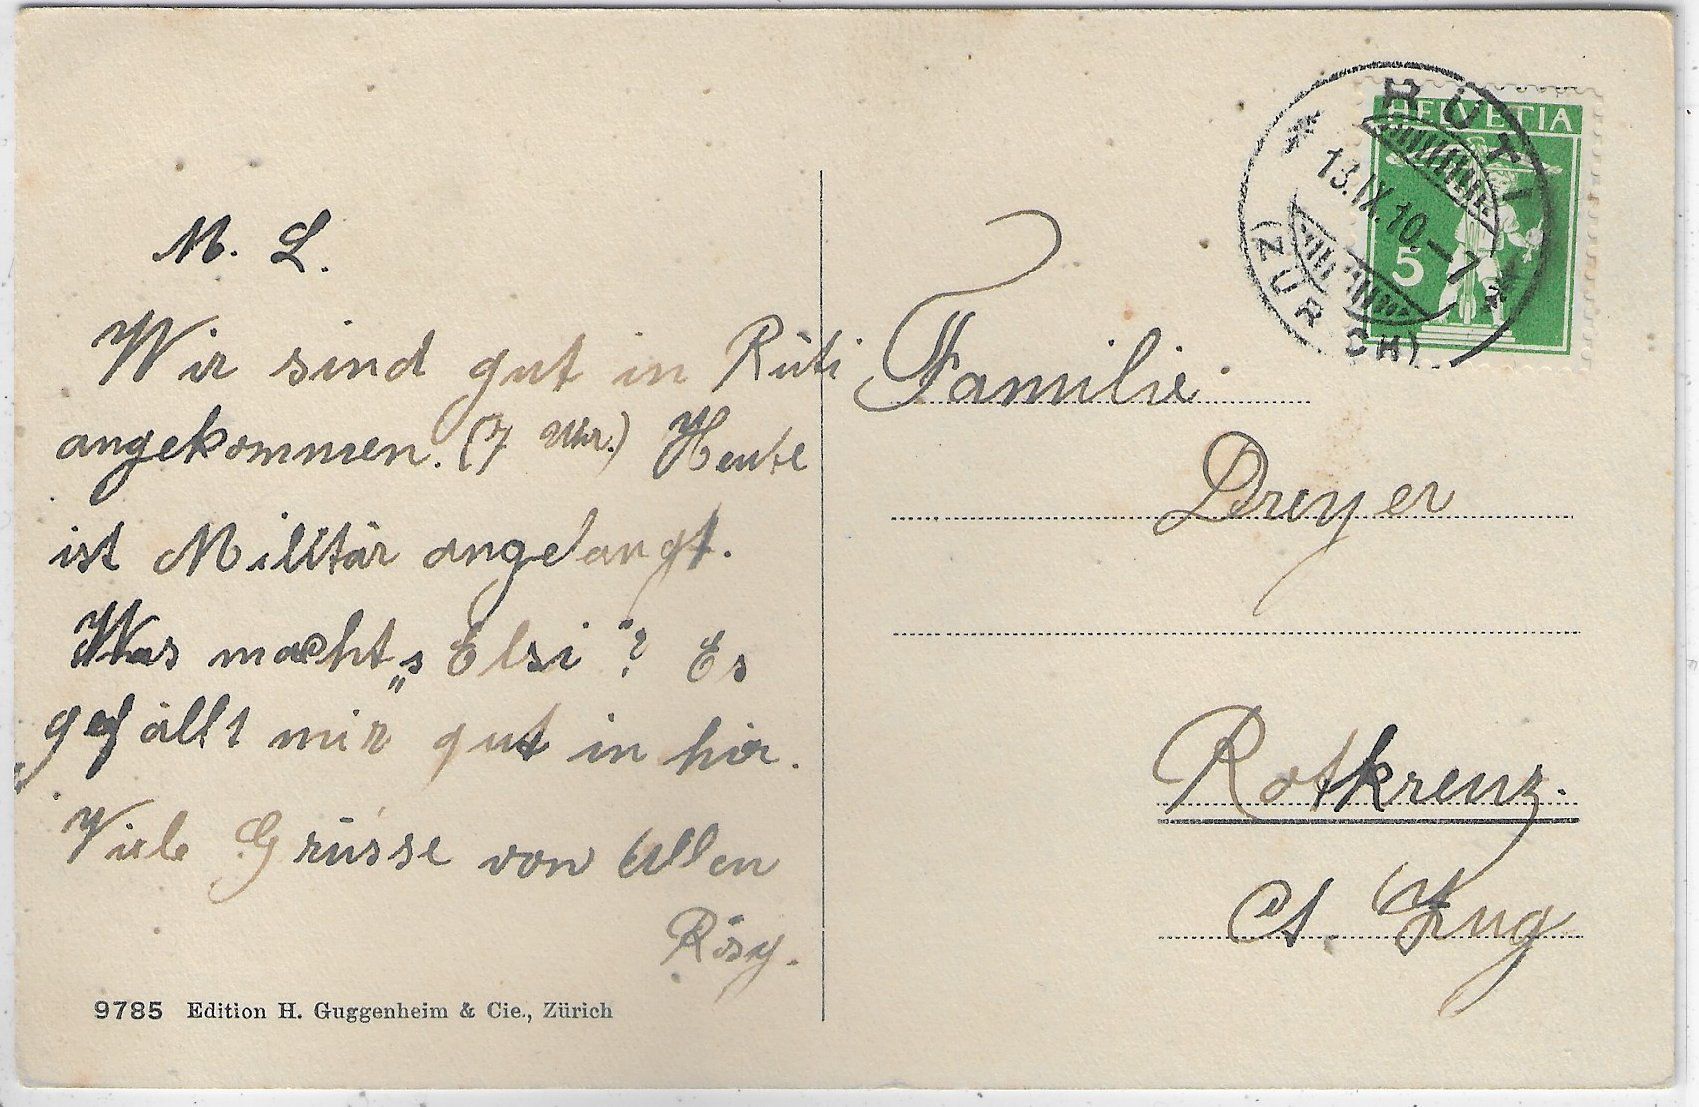 M. L.
Wir sind gut in Rüti
angekommen. (7 Uhr.) Heute
ist Militär angelangt.
Was macht's „Elsi“? Es
gefällt mir gut in hir.
Viele Grüsse von Allen
Rösy.
9785 Edition H. Guggenheim & Cie., Zürich
HELVETIA
5
RÜTI
13.IX.10.–7
(ZÜRICH)
Familie
Dreyer
Rotkreuz.
Ct. Zug